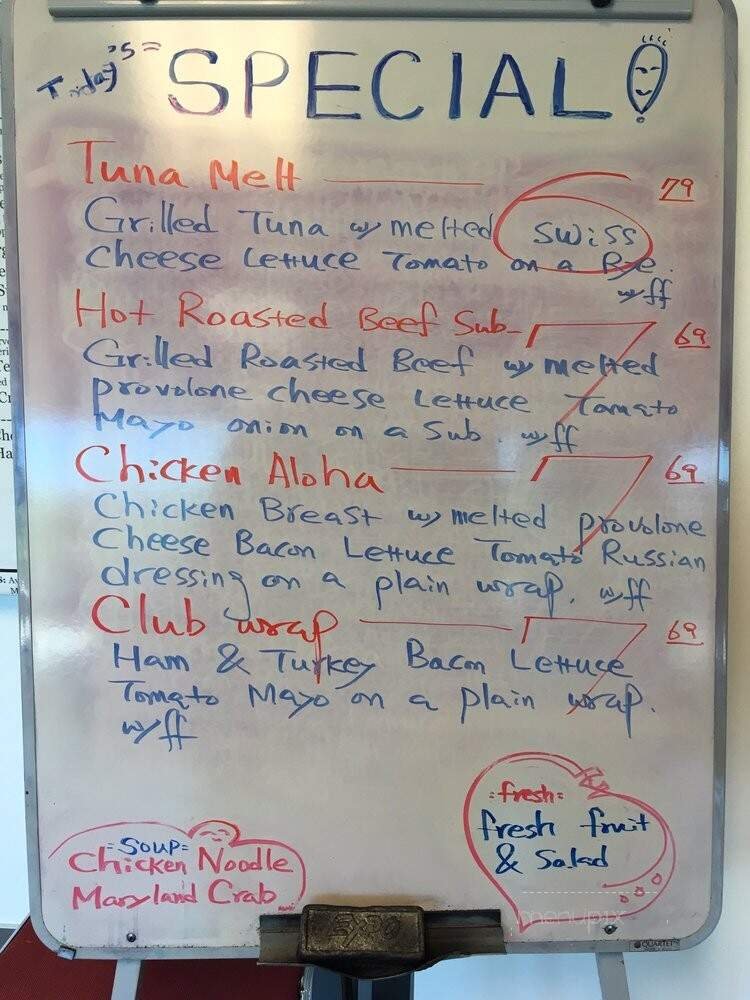 Today's =
SPECIAL!
Tuna Melt 6 79
Grilled Tuna w/ melted swiss
cheese Lettuce Tomato on a Rye.
w/ff
Hot Roasted Beef Sub 7 69
Grilled Roasted Beef w/ melted
provolone cheese Lettuce Tomato
Mayo onion on a Sub. w/ff
Chicken Aloha 7 69
Chicken Breast w/ melted provolone
Cheese Bacon Lettuce Tomato Russian
dressing on a plain wrap. w/ff
Club wrap 7 69
Ham & Turkey Bacon Lettuce
Tomato Mayo on a plain wrap.
w/ff
=Soup=
Chicken Noodle
Maryland Crab
=fresh=
fresh fruit
& Salad
EXPO
menupix
QUARTET